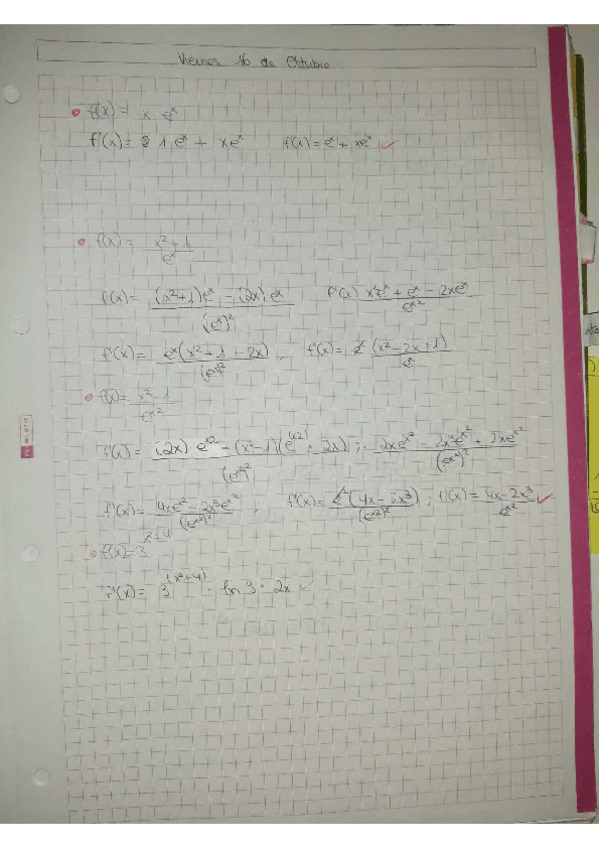 Viernes 16 de Octubre
f(x) = x · eˣ
f'(x) = 1 eˣ + xeˣ f'(x) = eˣ + xeˣ ✓
f(x) = (x² + 1)/eˣ
f'(x) = ((x²+1)eˣ - (2x) eˣ)/(eˣ)² f'(x) (x²eˣ + eˣ - 2xeˣ)/eˣ²
f'(x) = eˣ(x² + 1 - 2x)/(eˣ)² ; f'(x) = (x² - 2x + 1)/eˣ
f(x) = (x² - 1)/eˣ²
f'(x) = ((2x) eˣ² - (x² - 1)(e⁽ˣ²⁾ · 2x))/(eˣ²)² ; (2xeˣ² - 2x³eˣ² + 2xeˣ²)/(eˣ²)²
f'(x) = (4xeˣ² - 2x³eˣ²)/(eˣ²)² ; f'(x) = eˣ²(4x - 2x³)/(eˣ²)² ; f'(x) = (4x - 2x³)/eˣ² ✓
f(x) = 3ˣ²⁺⁴
f'(x) = 3⁽ˣ²⁺⁴⁾ · ln 3 · 2x ✓